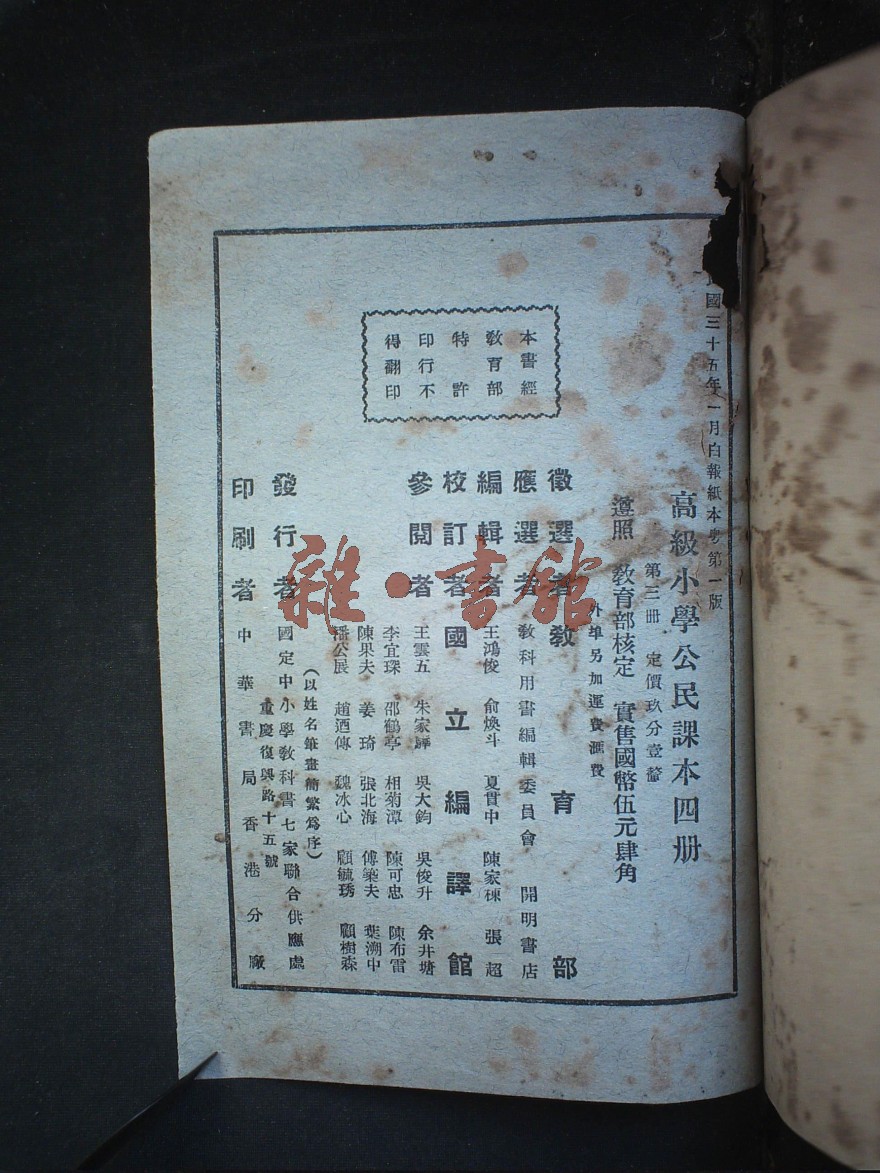 國三十五年一月白報紙本第一版
高級小學公民課本四册
第三册　定價玖分壹釐
遵照　教育部核定　實售國幣伍元肆角
外埠另加運費滙費
本書經
教育部
特許
印行不
得翻印
徵選者教育部
應選者　教科用書編輯委員會　開明書店
編輯者　王鴻俊　俞煥斗　夏貫中　陳家棟　張超
校訂者國立編譯館
參閱者　王雲五　朱家驊　吳大鈞　吳俊升　余井塘
李宜琛　邵鶴亭　相菊潭　陳可忠　陳布雷
陳果夫　姜琦　張北海　傅築夫　葉溯中
潘公展　趙迺傳　魏冰心　顧毓琇　顧樹森
（以姓名筆畫簡繁爲序）
發行者　國定中小學教科書七家聯合供應處
重慶復興路十五號
印刷者　中華書局香港分廠
雜·書館